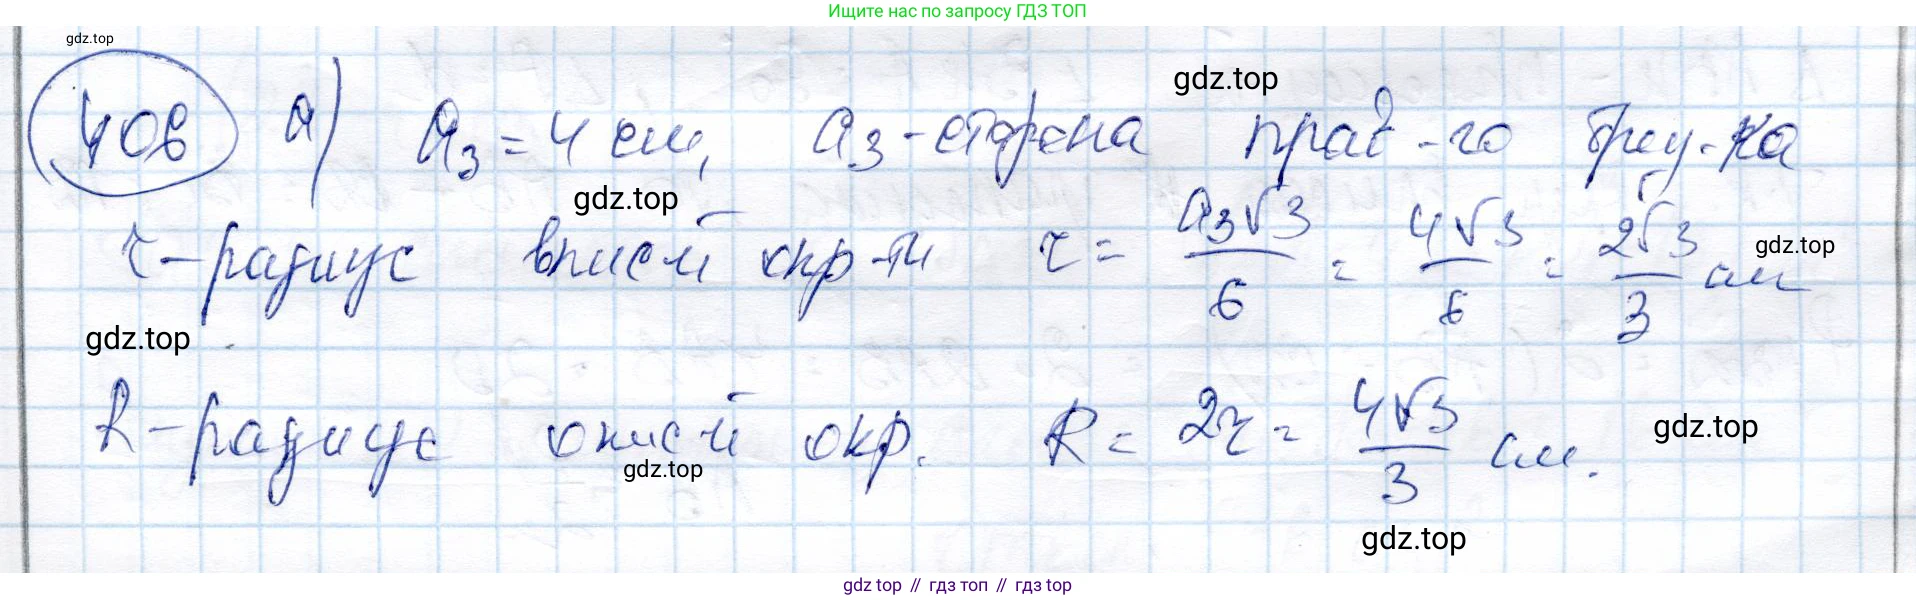 Ищите нас по запросу ГДЗ ТОП
gdz.top
gdz.top
406 а) a₃ = 4 см, a₃ - сторона прав-го треу-ка
gdz.top
r - радиус впис-й окр-ти r = a₃√3/6 = 4√3/6 = 2√3/3 см
gdz.top
gdz.top
R - радиус опис-й окр. R = 2r = 4√3/3 см.
gdz.top
gdz.top
gdz.top
gdz top // гдз топ // гдз top